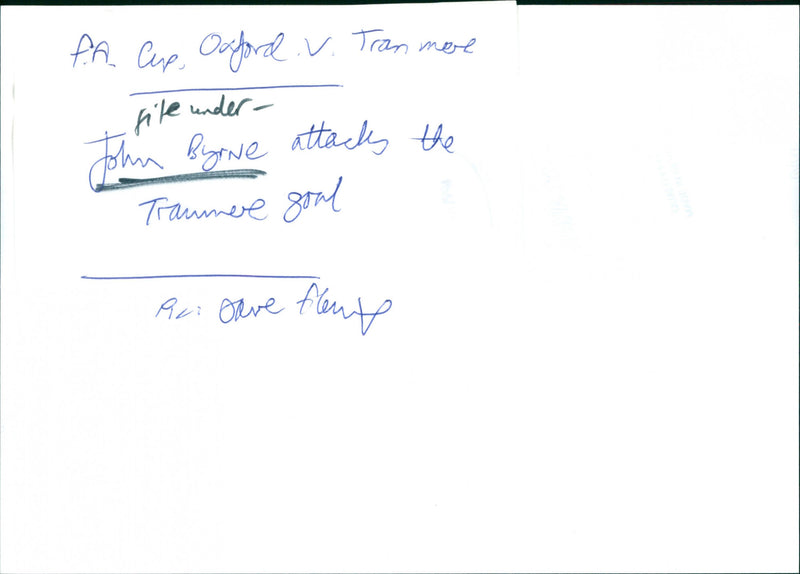 F.A. Cup, Oxford .V. Tranmere
file under -
John Byrne attacks the
Tranmere goal
Pic: Dave Fleming